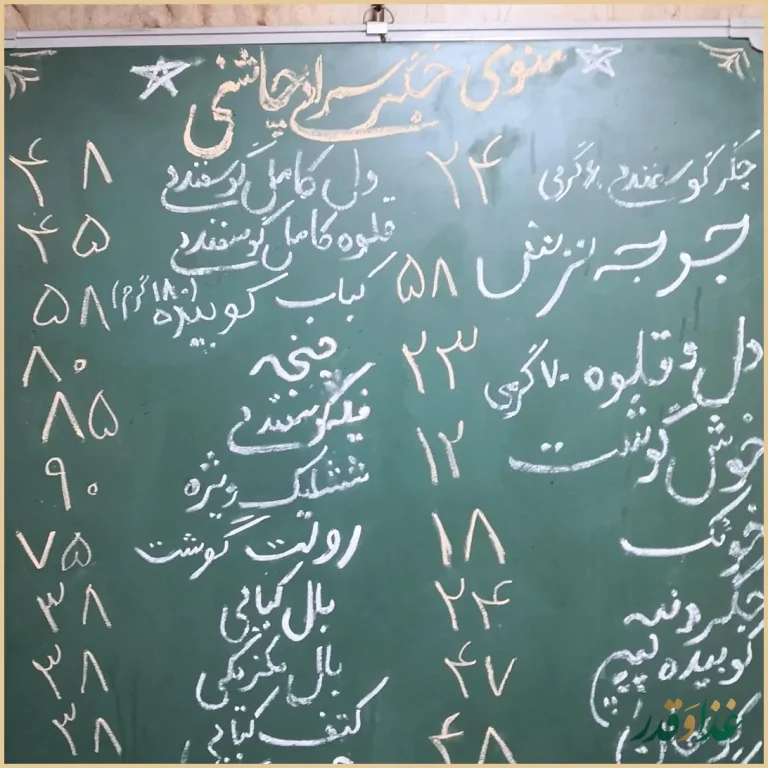 منوی جگرسرای چاشنی
جگر گوسفندی ۶۰ گرمی ۲۴
جوجه ترش ۵۸
دل و قلوه ۷۰ گرمی ۲۳
خوش گوشت ۱۲
خوئک ۱۸
جگر دنبه ۲۴
کوبیده لپیم ۴۷
۴۸
دل کامل گوسفندی ۴۸
قلوه کامل گوسفندی ۴۵
کباب کوبیده (۱۸۰ گرم) ۵۸
پنجه ۸۰
فیله گوسفندی ۸۵
ششلیک ویژه ۹۰
رولت گوشت ۷۵
بال کبابی ۳۸
بال مکزیکی ۳۸
کتف کبابی ۳۸
غذا و قدر